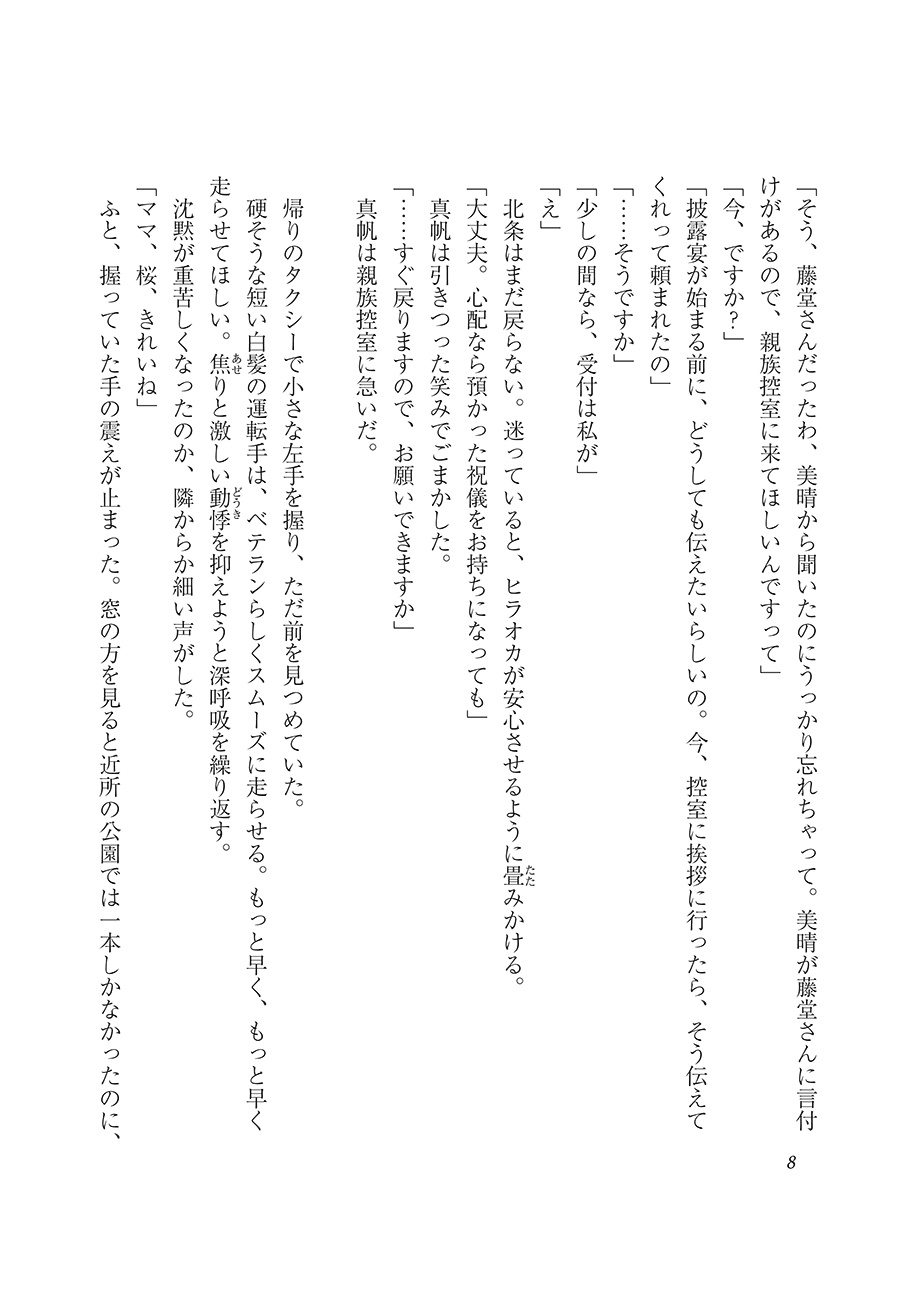 「そう、藤堂さんだったわ、美晴から聞いたのにうっかり忘れちゃって。美晴が藤堂さんに言付
けがあるので、親族控室に来てほしいんですって」
「今、ですか？」
「披露宴が始まる前に、どうしても伝えたいらしいの。今、控室に挨拶に行ったら、そう伝えて
くれって頼まれたの」
「……そうですか」
「少しの間なら、受付は私が」
「え」
　北条はまだ戻らない。迷っていると、ヒラオカが安心させるように畳みかける。
たた
「大丈夫。心配なら預かった祝儀をお持ちになっても」
　真帆は引きつった笑みでごまかした。
「……すぐ戻りますので、お願いできますか」
　真帆は親族控室に急いだ。
　帰りのタクシーで小さな左手を握り、ただ前を見つめていた。
　硬そうな短い白髪の運転手は、ベテランらしくスムーズに走らせる。もっと早く、もっと早く
走らせてほしい。焦りと激しい動悸を抑えようと深呼吸を繰り返す。
あせ
どうき
　沈黙が重苦しくなったのか、隣からか細い声がした。
「ママ、桜、きれいね」
　ふと、握っていた手の震えが止まった。窓の方を見ると近所の公園では一本しかなかったのに、
8